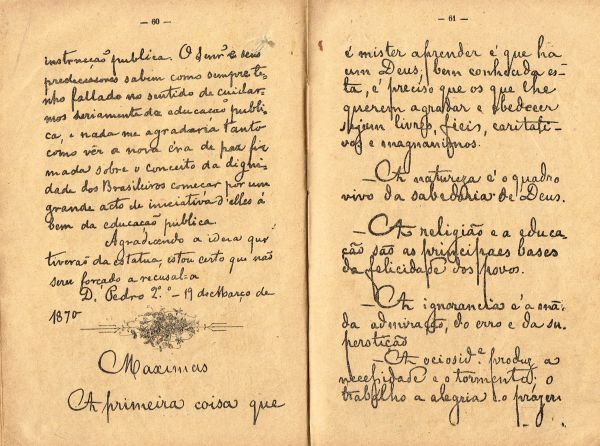 — 60 —
instrucção publica. O Senr e seus
predecessores sabem como sempre te-
nho fallado no sentido de cuidar-
mos seriamente da educação publi-
ca, e nada me agradaria tanto
como vêr a nova éra de paz fir
mada sobre o conceito da digni
dade dos Brasileiros começar por um
grande acto de iniciativa d'elles á
bem da educação pública.
Agradecendo a ideia que
tiverão da estatua, estou certo que não
serei forçado a recusal-a
D. Pedro 2.º - 19 de Março de
1870
Maximas
A primeira coisa que
— 61 —
é mister aprender é que ha
um Deus; bem conhecida es-
ta, é preciso que os que lhe
querem agradar e obedecer
sejam livres, fieis, caritati-
vos e magnanimos.
— A natureza é o quadro
vivo da sabedoria de Deus.
— A religião e a educa-
ção são as principaes bases
da felicidade dos povos.
— A ignorancia é a mãi
da admiração, do erro e da su-
perstição
— A ociosid.e produz a
necessidade e o tormento; o
trabalho a alegria e o prazer